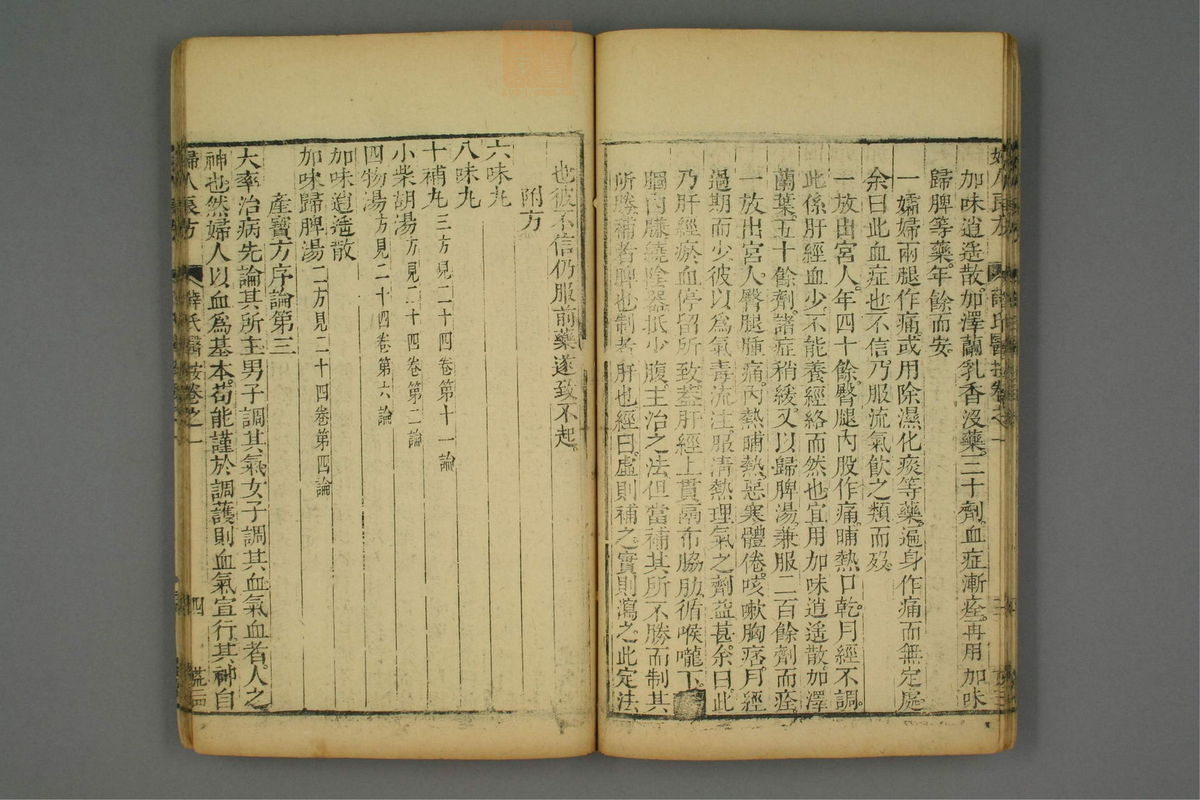 婦人良方　薛氏醫按卷之一
加味逍遥散加澤蘭乳香没藥三十劑血症漸痊再用加味
歸脾等藥年餘而安
一孀婦兩腿作痛或用除濕化痰等藥遍身作痛而無定處
余曰此血症也不信乃服流氣飲之類而歿
一放出宮人年四十餘臀腿内股作痛晡熱口乾月經不調
此係肝經血少不能養經絡而然也宜用加味逍遥散加澤
蘭葉五十餘劑諸症稍緩又以歸脾湯兼服二百餘劑而痊
一放出宮人臀腿腫痛内熱晡熱惡寒體倦咳嗽胸痞月經
過期而少彼以爲氣毒流注服清熱理氣之劑益甚余曰此
乃肝經瘀血停留所致蓋肝經上貫膈布脇肋循喉嚨下
膕内臁繞陰器抵少腹主治之法但當補其所不勝而制其
所勝補者脾也制者肝也經曰虚則補之實則瀉之此定法
也彼不信仍服前藥遂致不起
附方
六味丸
八味丸
十補丸三方見二十四卷第十一論
小柴胡湯方見二十四卷第二論
四物湯方見二十四卷第六論
加味逍遥散
加味歸脾湯二方見二十四卷第四論
産寶方序論第三
大率治病先論其所主男子調其氣女子調其血氣血者人之
神也然婦人以血爲基本苟能謹於調護則血氣宣行其神自
婦人良方　薛氏醫按卷之一　四